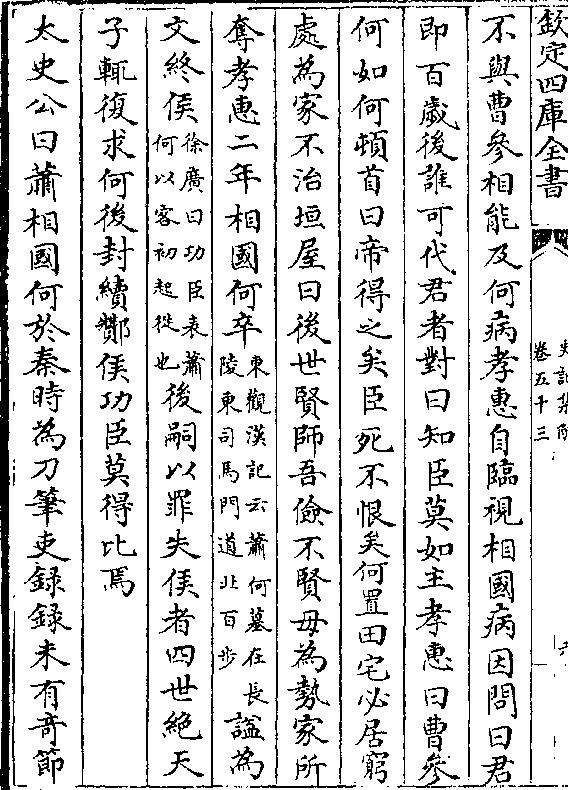 欽定四庫全書
史記集解
卷五十三
不與曹參相能及何病孝惠自臨視相國病因問曰君
即百歲後誰可代君者對曰知臣莫如主孝惠曰曹參
何如何頓首曰帝得之矣臣死不恨矣何置田宅必居窮
處為家不治垣屋曰後世賢師吾儉不賢毋為勢家所
奪孝惠二年相國何卒東觀漢記云蕭何墓在長陵東司馬門道北百步諡為
文終侯徐廣曰功臣表蕭何以客初起從也後嗣以罪失侯者四世絶天
子輒復求何後封續酇侯功臣莫得比焉
太史公曰蕭相國何於秦時為刀筆吏録録未有竒節